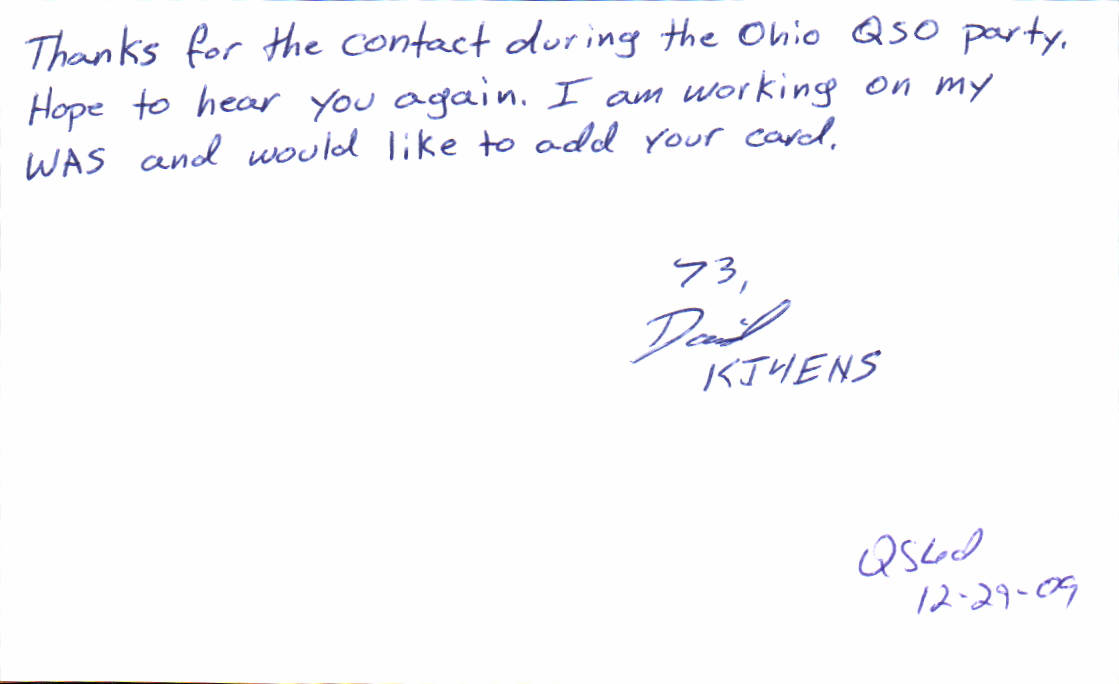 Thanks for the contact during the Ohio QSO party.
Hope to hear you again. I am working on my
WAS and would like to add your card.
73,
David
KJ4ENS
QSLd
12-29-09